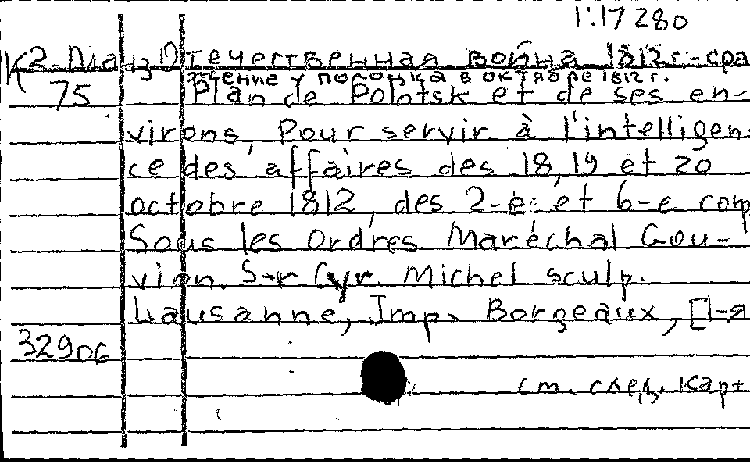 1:17 280
К 2-Диап, Отечественная война 1812 г.-сра
жение у Полоцка в октябре 1812 г.
75 Plan de Polotsk et de ses en-
virons, Pour servir à l'intelligen-
ce des affaires des 18, 19 et 20
octobre 1812, des 2-e et 6-e corp
Sous les ordres Maréchal Gou-
vion S-r Cyr. Michel sculp.
Lausanne, Imp. Borgeaux, [1-я
32906
см. след. карт